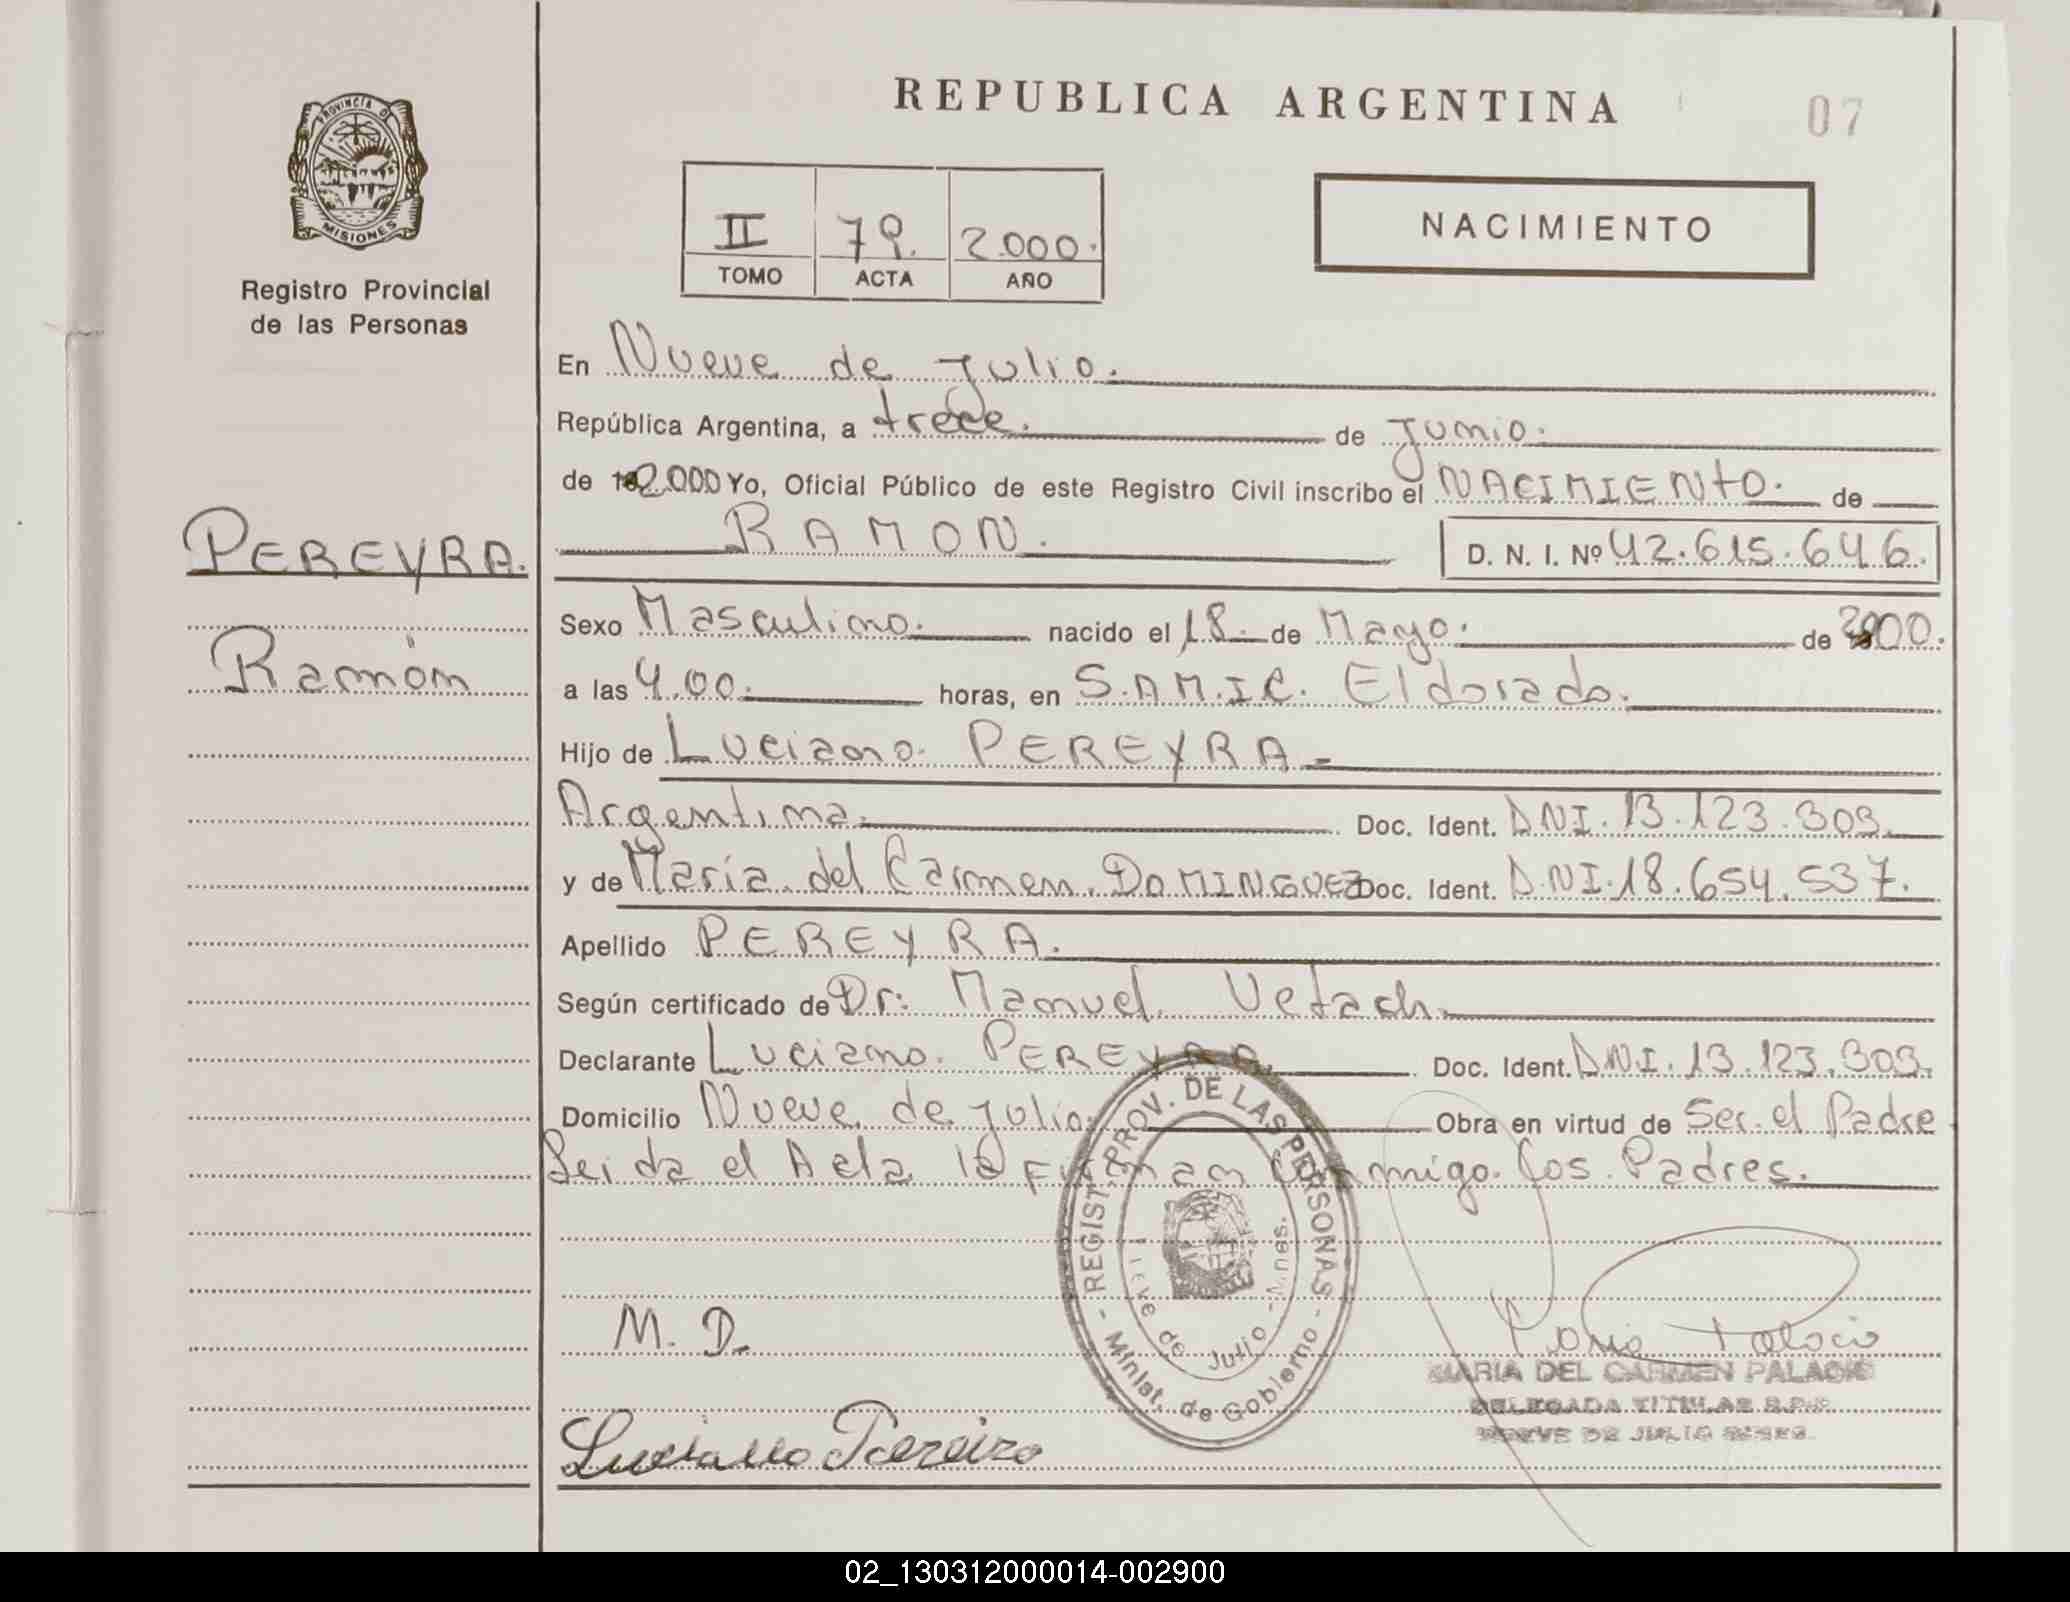 REPUBLICA ARGENTINA
07
PROVINCIA DE
MISIONES
Registro Provincial
de las Personas
II 79. 2.000.
TOMO ACTA AÑO
NACIMIENTO
En Nueve de Julio.
República Argentina, a trece. de Junio.
de 2.000 Yo, Oficial Público de este Registro Civil inscribo el NACIMIENTO. de
RAMON. D. N. I. Nº 42.615.646.
PEREYRA.
Ramón
Sexo Masculino. nacido el 18. de Mayo. de 2000.
a las 4.00. horas, en S.A.M.I.C. Eldorado.
Hijo de Luciano PEREYRA
Argentina. Doc. Ident. DNI. 13.123.303.
y de María del Carmen DOMINGUEZ Doc. Ident. D.NI. 18.654.537.
Apellido PEREYRA.
Según certificado de Dr: Manuel Vetach.
Declarante Luciano PEREYRA. Doc. Ident. DNI. 13.123.303.
Domicilio Nueve de Julio. Obra en virtud de Ser el Padre
Leida el Acta la Firman Conmigo los Padres.
REGIST. PROV. DE LAS PERSONAS
- Minist. de Gobierno -
Nueve de Julio - Mnes.
M. D.
Luciano Pereira
Maria Palacio
MARIA DEL CARMEN PALACIO
DELEGADA TITULAR R.P.P.
NUEVE DE JULIO
02_130312000014-002900